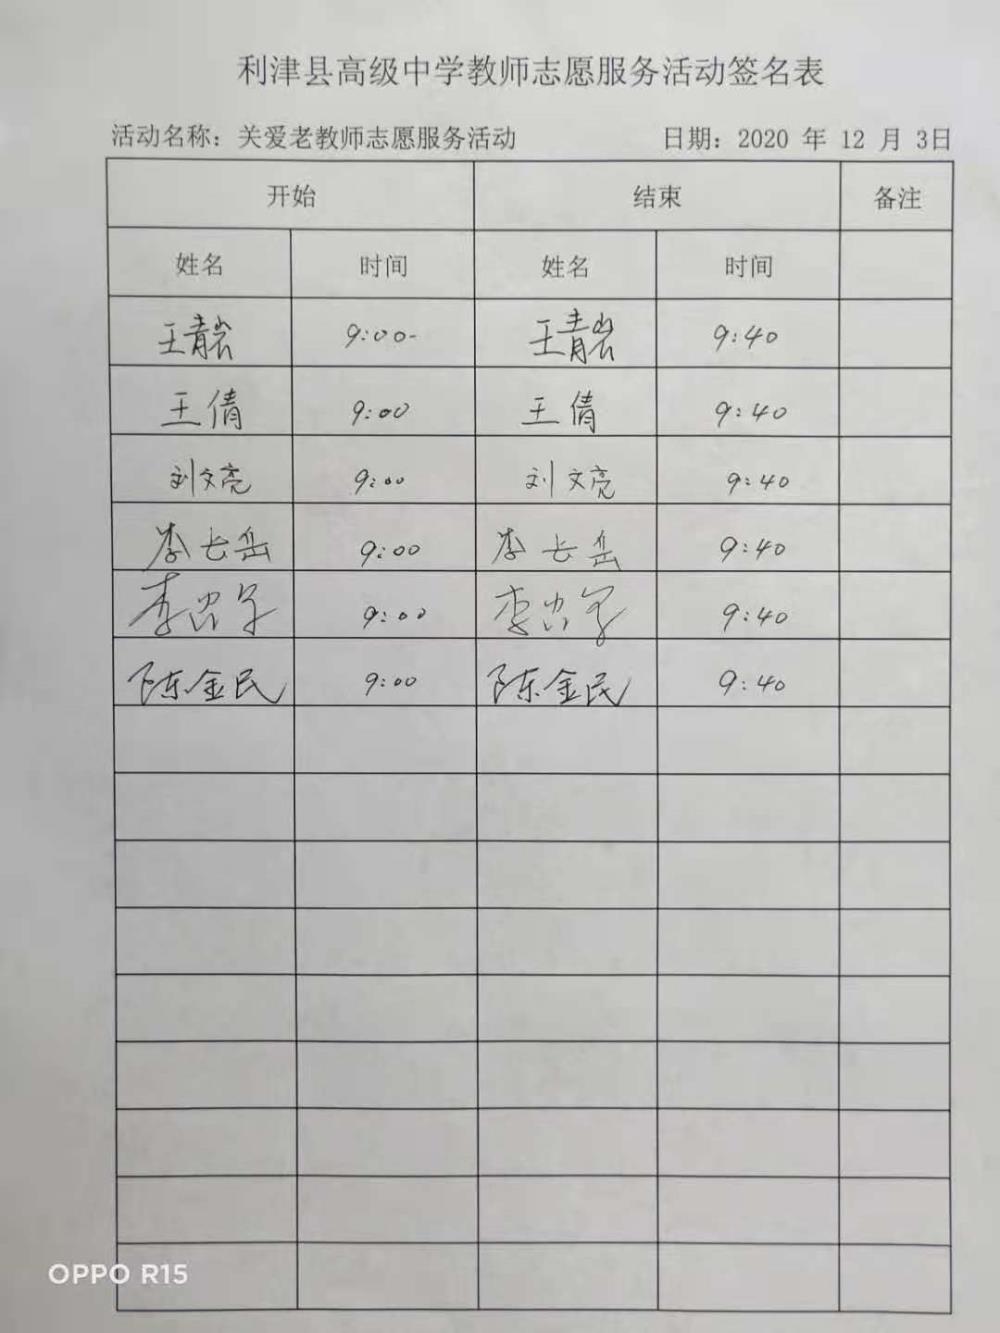 利津县高级中学教师志愿服务活动签名表
活动名称：关爱老教师志愿服务活动 日期：2020 年 12 月 3日
开始 结束 备注
姓名 时间 姓名 时间
王青岩 9:00- 王青岩 9:40
王倩 9:00 王倩 9:40
刘文亮 9:00 刘文亮 9:40
李长岳 9:00 李长岳 9:40
9:00 9:40
陈金民 9:00 陈金民 9:40
OPPO R15